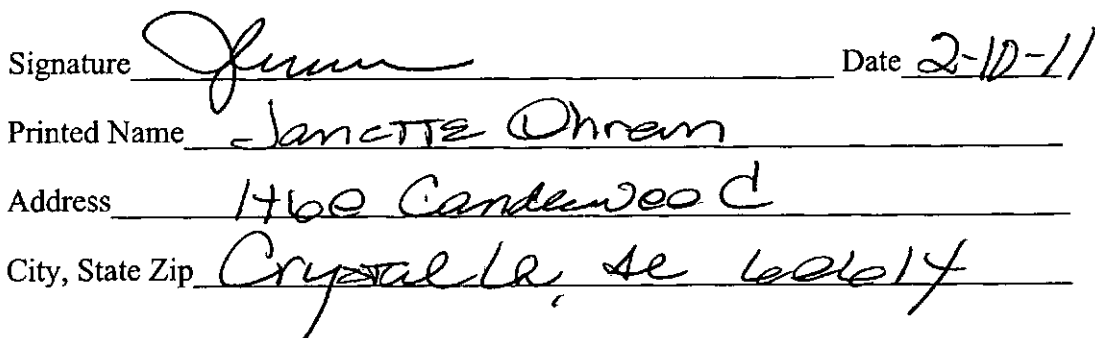 Signature Date 2-10-11
Printed Name Janette Ohrem
Address 1460 Candlewood
City, State Zip Crystal Lk, IL